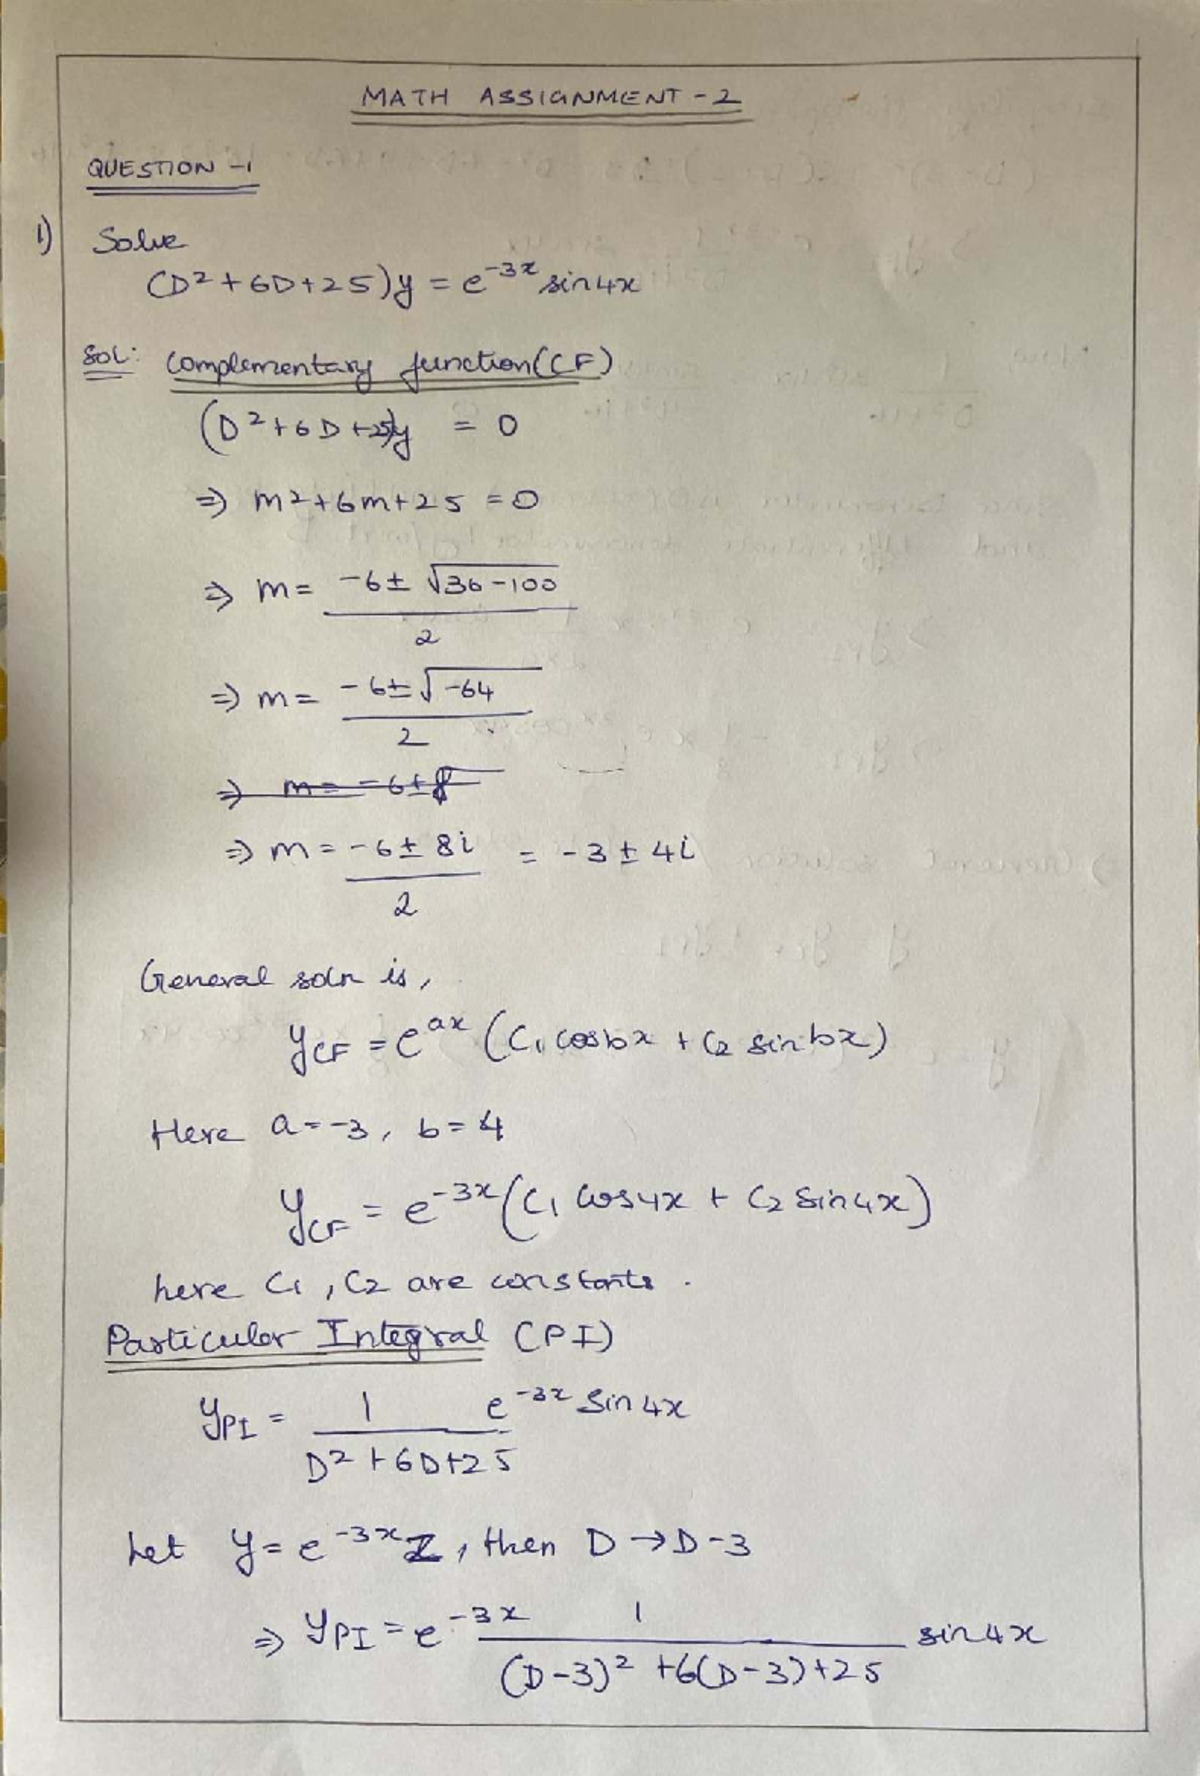 MATH ASSIGNMENT - 2
QUESTION - 1
1) Solve
(D² + 6D + 25)y = e^-3x sin4x
Sol: Complementary function (CF)
(D² + 6D + 25)y = 0
⇒ m² + 6m + 25 = 0
⇒ m = (-6 ± √36 - 100) / 2
⇒ m = (-6 ± √-64) / 2
⇒ m = (-6 ± 8i) / 2 = -3 ± 4i
General soln is,
y_CF = e^ax (C₁ cosbx + C₂ sinbx)
Here a = -3, b = 4
y_CF = e^-3x (C₁ cos4x + C₂ sin4x)
here C₁, C₂ are constants.
Particular Integral (PI)
y_PI = 1 / (D² + 6D + 25) e^-3x sin4x
Let y = e^-3x Z, then D → D - 3
⇒ y_PI = e^-3x 1 / ((D-3)² + 6(D-3) + 25) sin4x